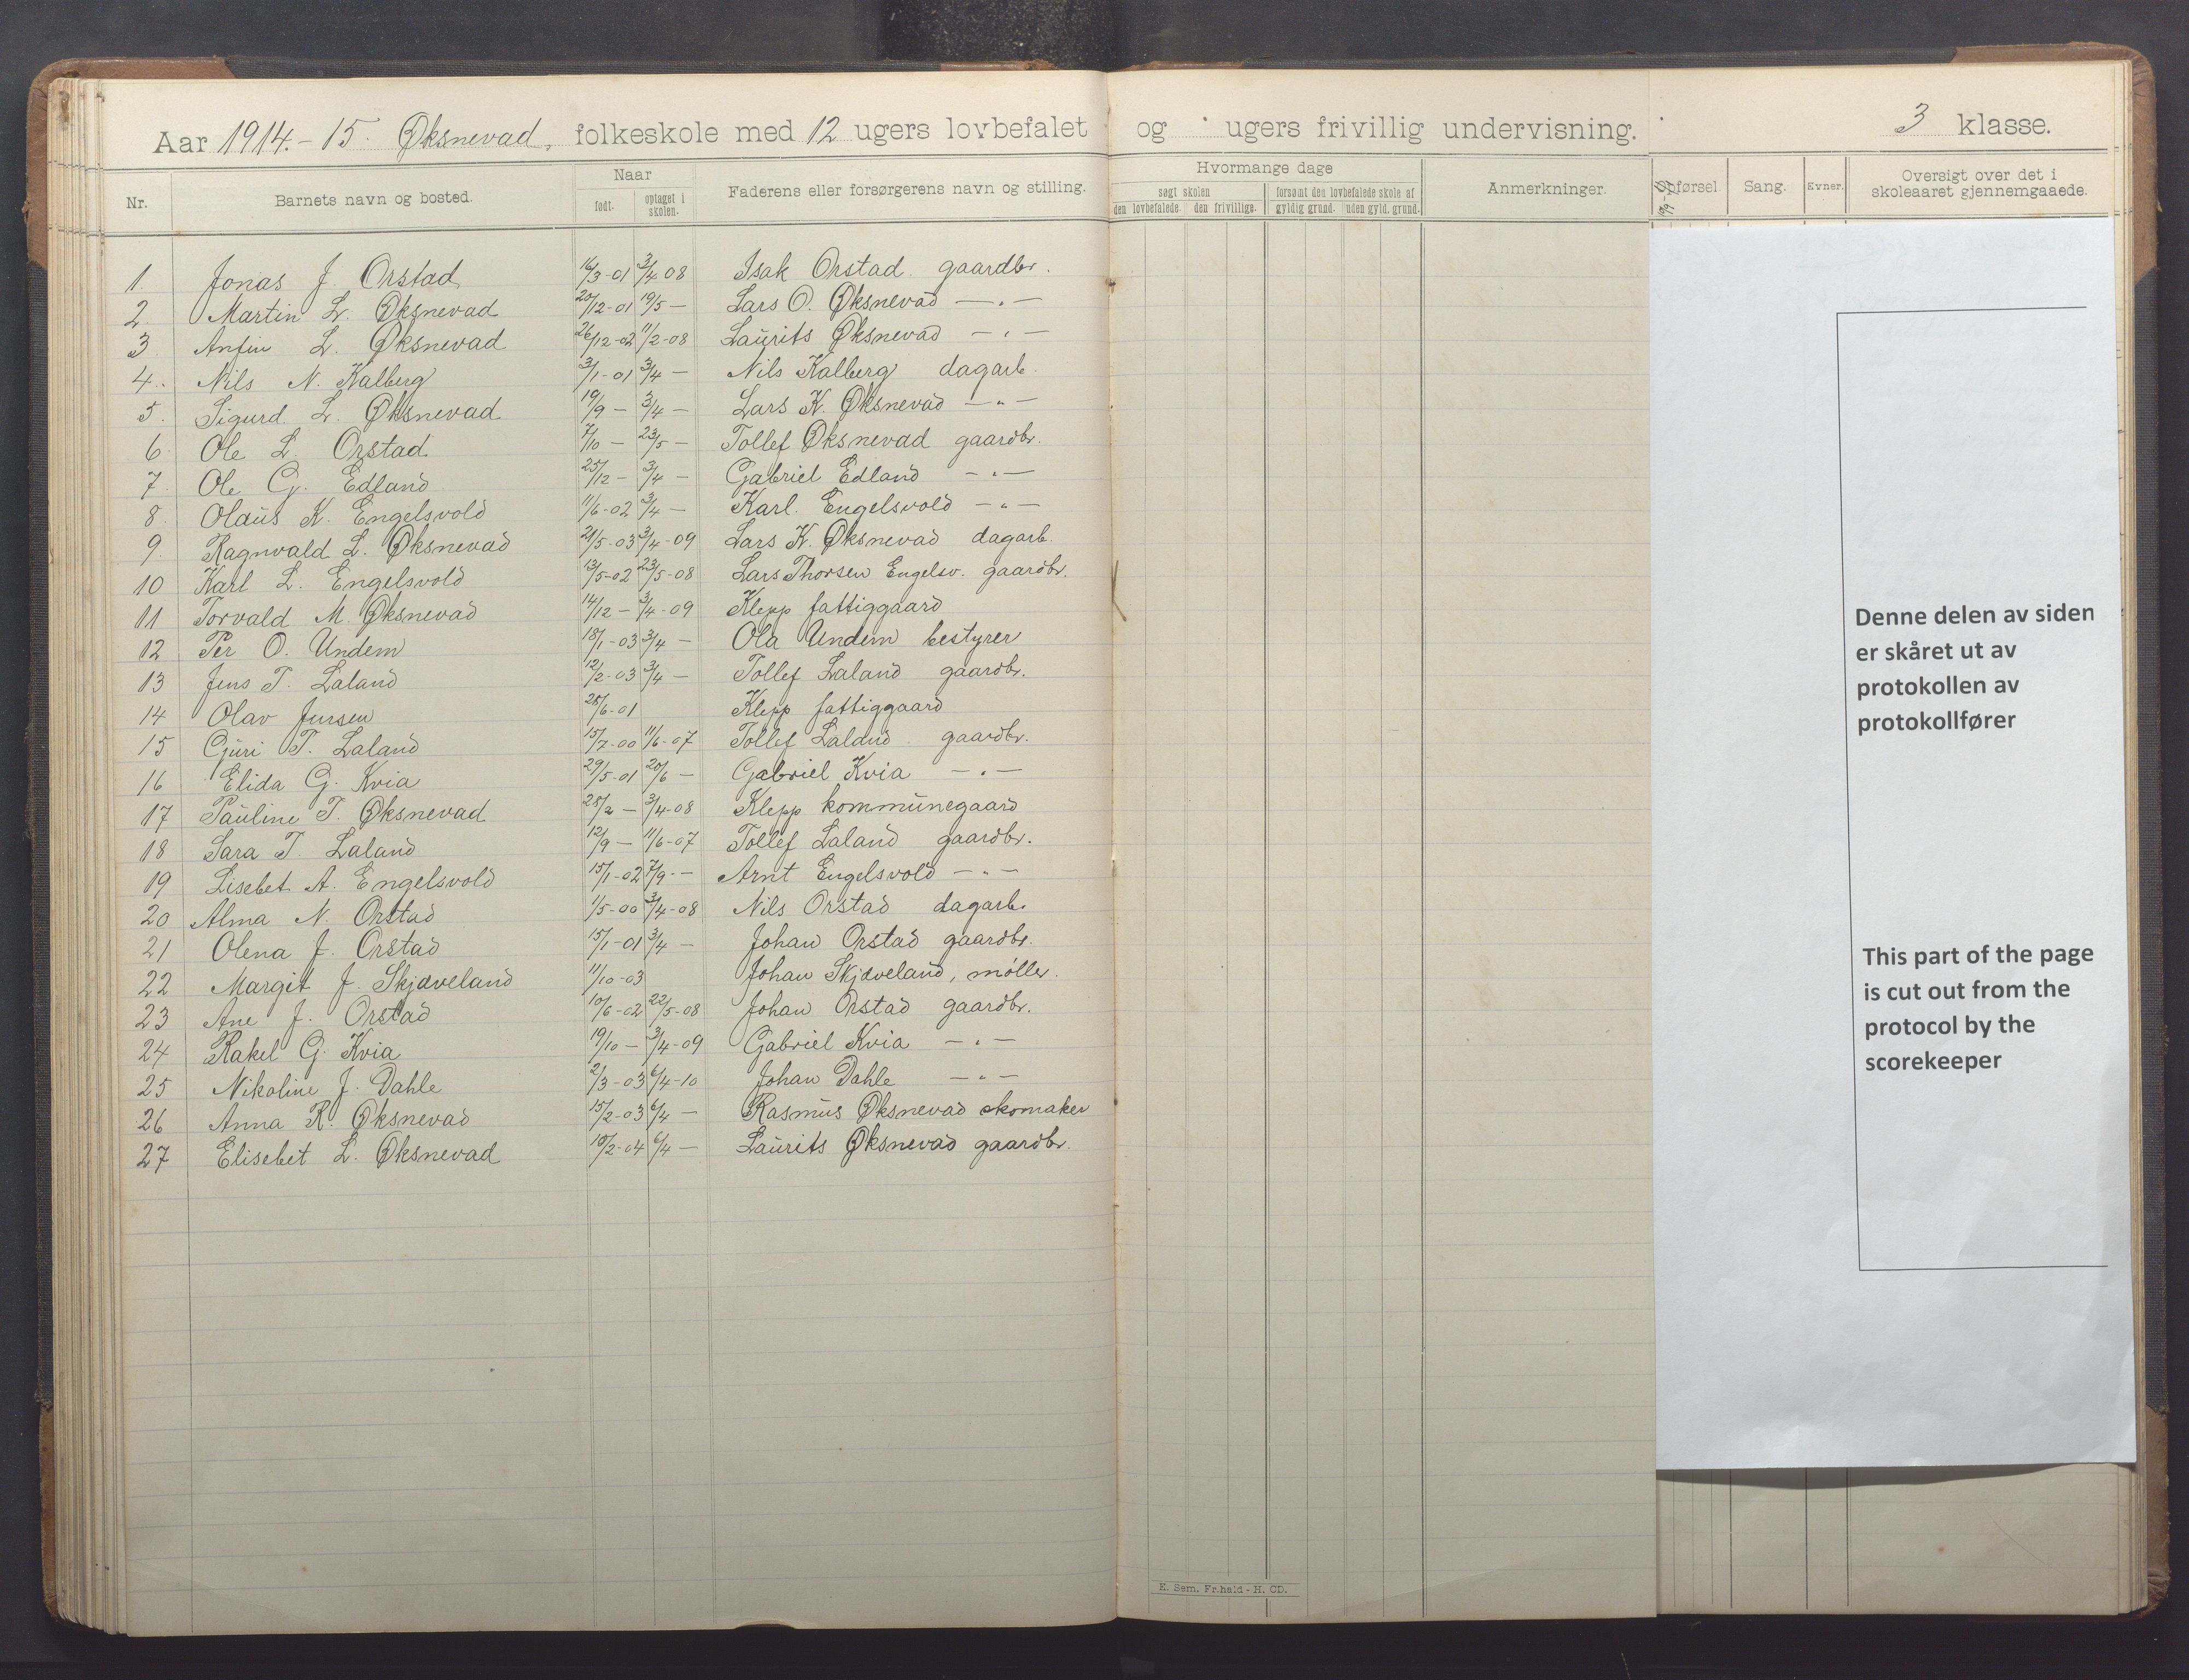 Aar 1914.-15. Øksnevad, folkeskole med 12 ugers lovbefalet og ugers frivillig undervisning. 3 klasse.
Nr. Barnets navn og bosted. Naar født. optaget i skolen. Faderens eller forsørgerens navn og stilling. Hvormange dage søgt skolen den lovbefalede. den frivillige. forsømt den lovbefalede skole af gyldig grund. uden gyld. grund. Anmerkninger. Opførsel. Sang. Evner. Oversigt over det i skoleaaret gjennemgaaede.
1. Jonas J. Orstad 16/3-01 3/4 08 Isak Orstad gaardbr.
2. Martin L. Øksnevad 20/12-01 19/5 — Lars O. Øksnevad —„—
3 Anfin L. Øksnevad 26/12-02 11/2-08 Laurits Øksnevad —„—
4. Nils N. Kalberg 3/1-01 3/4 — Nils Kalberg dagarb.
5. Sigurd L. Øksnevad 19/9 — 3/4 — Lars K. Øksnevad —„—
6. Ole L. Orstad 7/10 — 23/5 — Tollef Øksnevad gaardbr.
7. Ole G. Edland 25/12 — 3/4 — Gabriel Edland —„—
8. Olaus K. Engelsvold 11/6-02 3/4 — Karl Engelsvold —„—
9. Ragnvald L. Øksnevad 21/5-03 3/4-09 Lars K. Øksnevad dagarb.
10 Karl L. Engelsvold 13/5-02 23/5-08 Lars Thorsen Engelsv. gaardbr.
11 Torvald M. Øksnevad 14/12 — 3/4-09 Klepp fattiggaard
12 Per O. Undem 18/1-03 3/4 — Ola Undem bestyrer
13 Jens T. Laland 12/2-03 3/4 — Tollef Laland gaardbr.
14 Olav Jensen 28/6-01 Klepp fattiggaard
15 Guri T. Laland 15/7-00 11/6-07 Tollef Laland gaardbr.
16 Elida G. Kvia 29/5-01 20/6 — Gabriel Kvia —„—
17 Pauline T. Øksnevad 28/2 — 3/4-08 Klepp kommunegaard
18 Sara T. Laland 12/9 — 11/6-07 Tollef Laland gaardbr.
19 Lisebet A. Engelsvold 15/1-02 7/9 — Arnt Engelsvold —„—
20 Alma N. Orstad 1/5-00 3/4-08 Nils Orstad dagarb.
21 Olena J. Orstad 15/1-01 3/4 — Johan Orstad gaardbr.
22 Margit J. Skjæveland 11/10-03 Johan Skjæveland, møller.
23 Ane J. Orstad 10/6-02 22/5-08 Johan Orstad gaardbr.
24 Rakel G. Kvia 19/10 — 3/4-09 Gabriel Kvia —„—
25 Nikoline J. Dahle 2/3-03 6/4-10 Johan Dahle —„—
26 Anna R. Øksnevad 15/2-03 6/4 — Rasmus Øksnevad skomaker
27 Elisebet L. Øksnevad 10/2-04 6/4 — Laurits Øksnevad gaardbr.
Denne delen av siden
er skåret ut av
protokollen av
protokollfører
This part of the page
is cut out from the
protocol by the
scorekeeper
E. Sem. Fr.hald - H. CD.